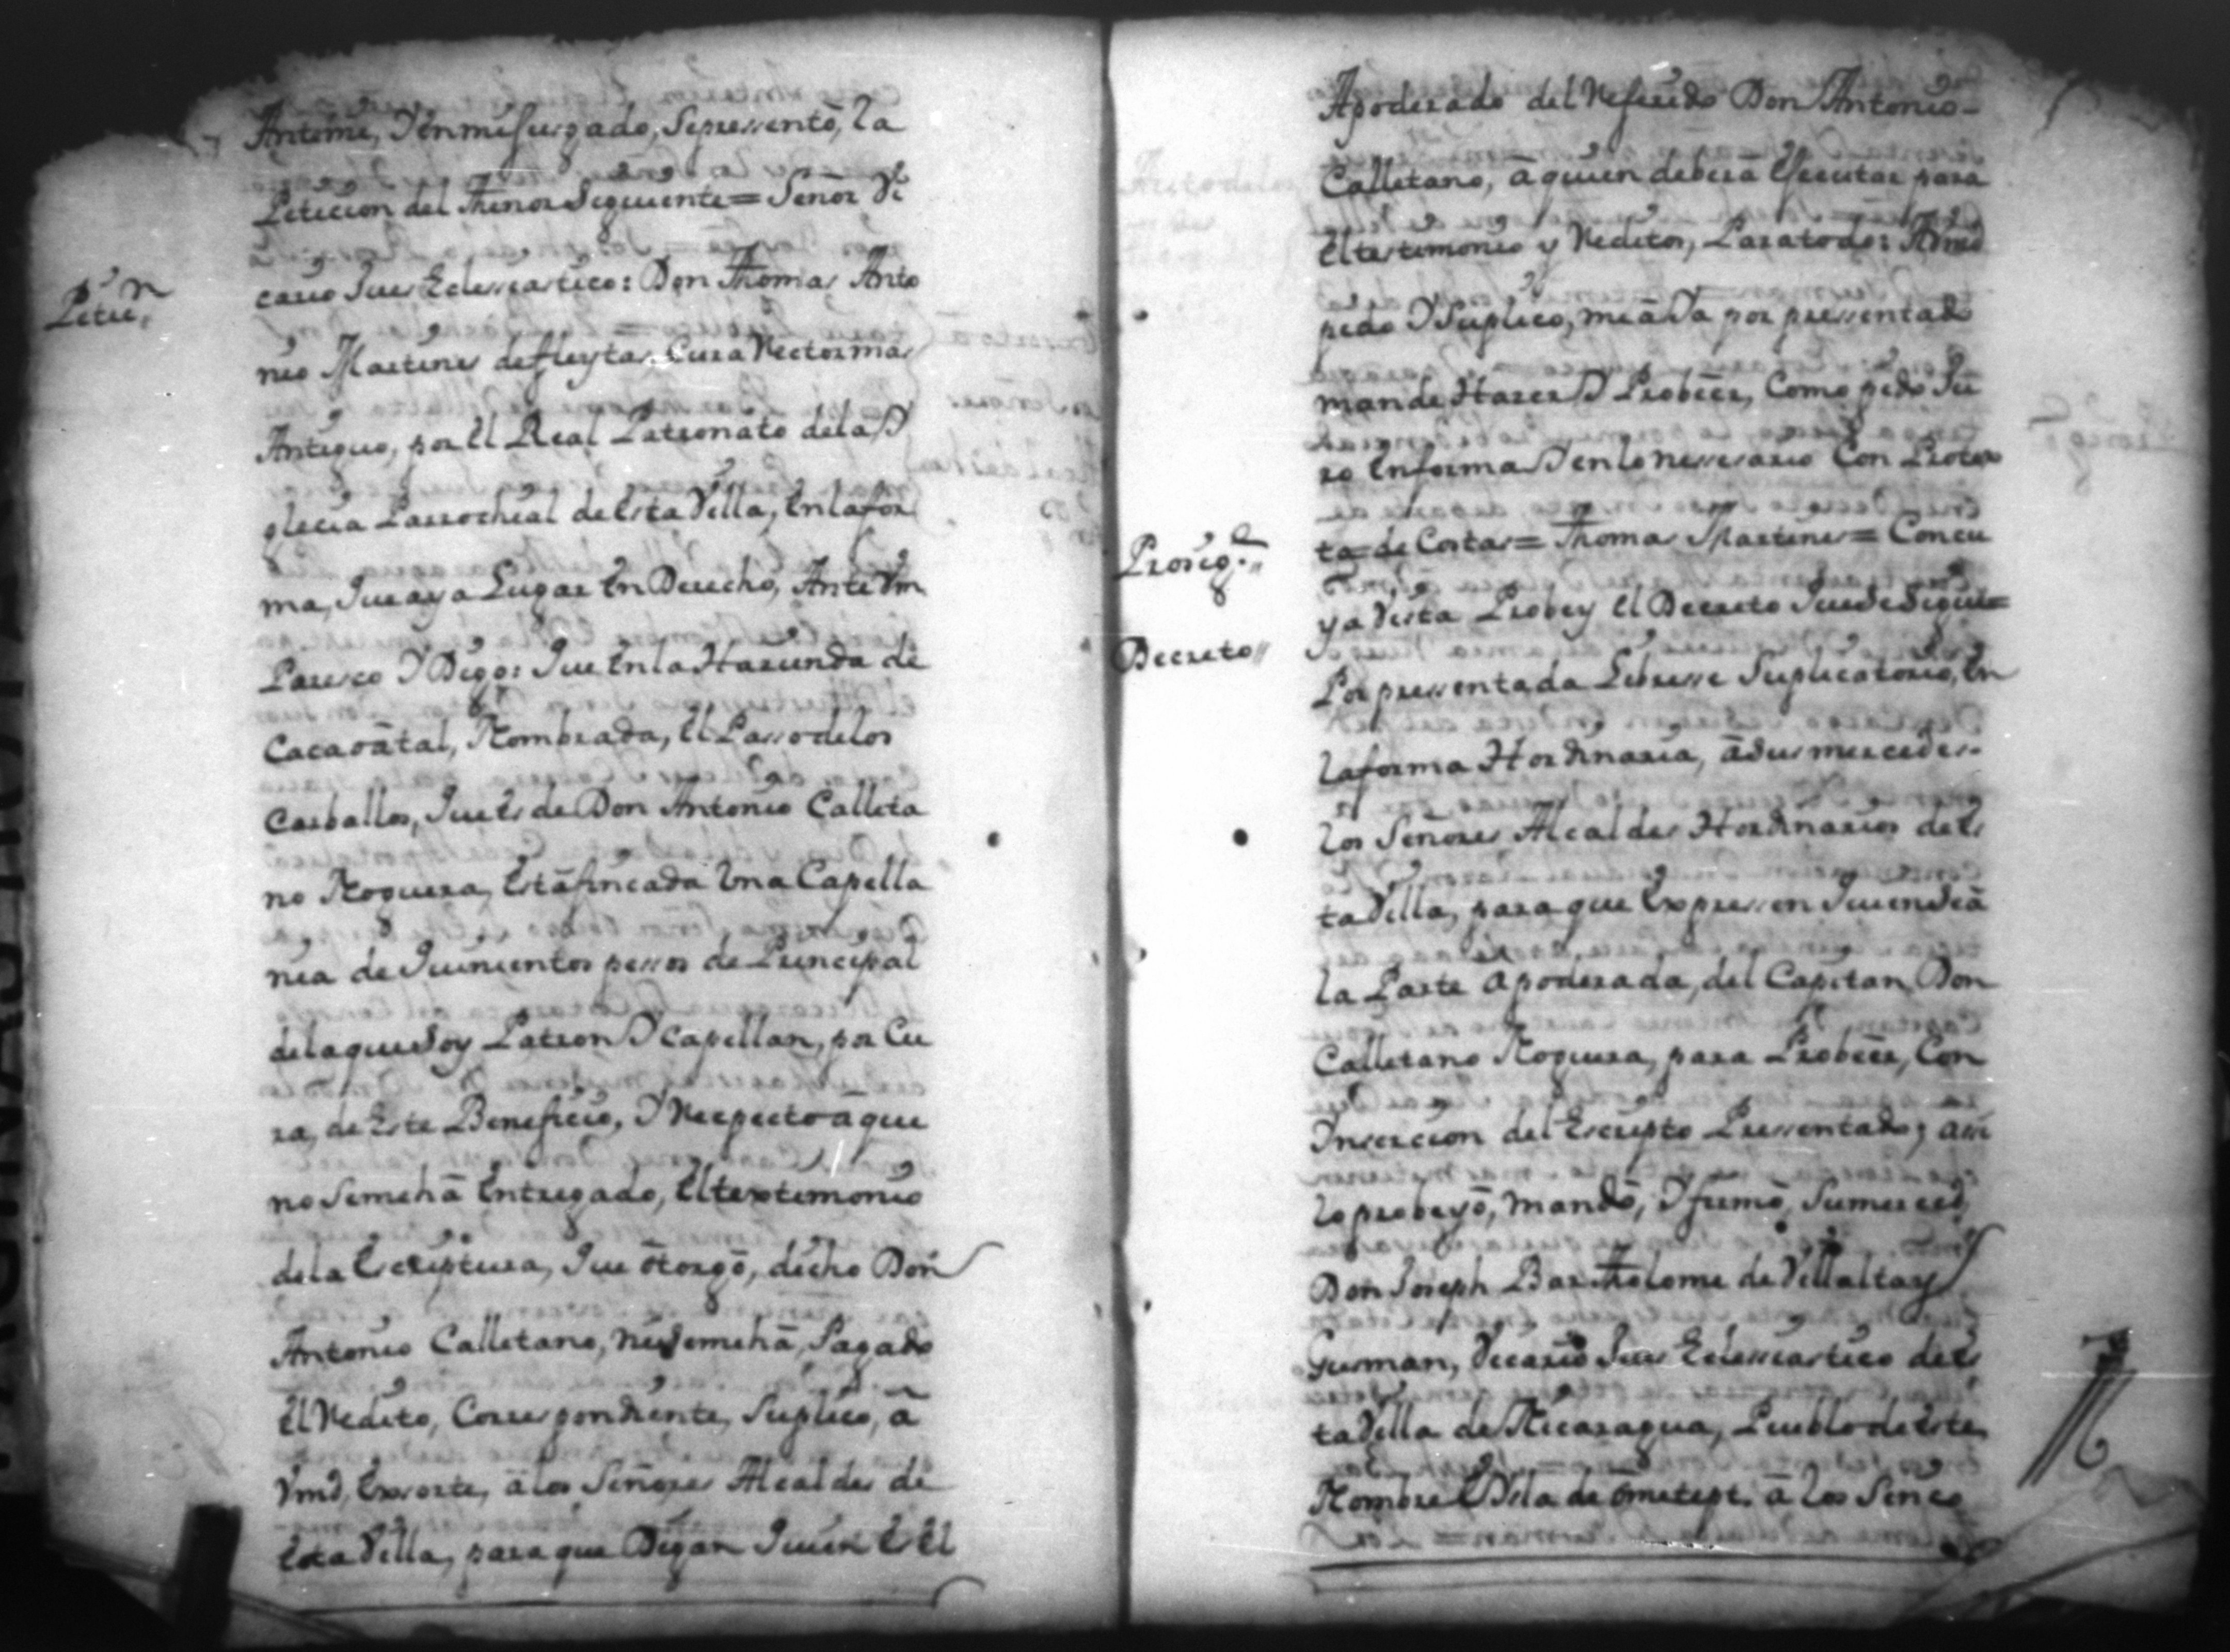 Antemi, Y en mi Jusgado, Sepressentó, la
Petición del Thenor Siguiente = Señor Vi
Petiçn.
cario Jues Eclessiastico: Don Thomas Anto
nio Martines de fleytas Cura Rector mas
Antiguo, por El Real Patronato dela Y
glecia Parrochial de Esta Villa, En la for
ma, Que aya Lugar En Derecho, Ante Vm
Paresco Y Digo: Que En la Hazienda de
Cacaoatal, Nombrada, El Passo delos
Carballos, Que Es de Don Antonio Calleta
no Noguera, Está fincada Una Capella
nia de Quinientos pessos de Principal
dela que Soy Patron Y Capellan, por Cu
ra, de Este Beneficio, Y Respecto á que
no Semehá Entregado, El textimonio
dela Escriptura, Que ótorgó, dicho Don
Antonio Calletano, ni Semehá, Pagado
El Redito, Correspondiente, Suplico, á
Vmd, Exsorte, á los Señores Alcaldes de
Esta Villa, para que Digan Quien Es El
Apoderado del Referido Don Antonio
Calletano, á quien deberá Executar para
El testimonio y Reditos, Para todo: A Vmd
pido Y Suplico, me áYa por pressentado
mande Hazer Y Probeer, Como pido Ju
ro En forma Y en lo nessesario Con Protes
ta de Costas = Thomas Martines = Con cu
Prosig.e
ya Vista Probey El Decreto Que Se Sigue =
Decreto
Por pressentada Librese Suplicatorio, En
la forma Hordinaria, á Sus mercedes
los Señores Alcaldes Hordinarios de Es
ta Villa, para que Expressen Quien Seá
la Parte Apoderada, del Capitan Don
Calletano Noguera, para Probeer, Con
Ynsercion del Escripto Pressentado; assi
lo probeyó, mandó, Y firmó, Sumerced,
Don Joseph Bartholome de Villalta y
Gusman, Vicario Jues Eclessiastico de Es
ta Villa de Nicaragua, Pueblo de Este
Nombre E Ysla de ometept. á los Sinco